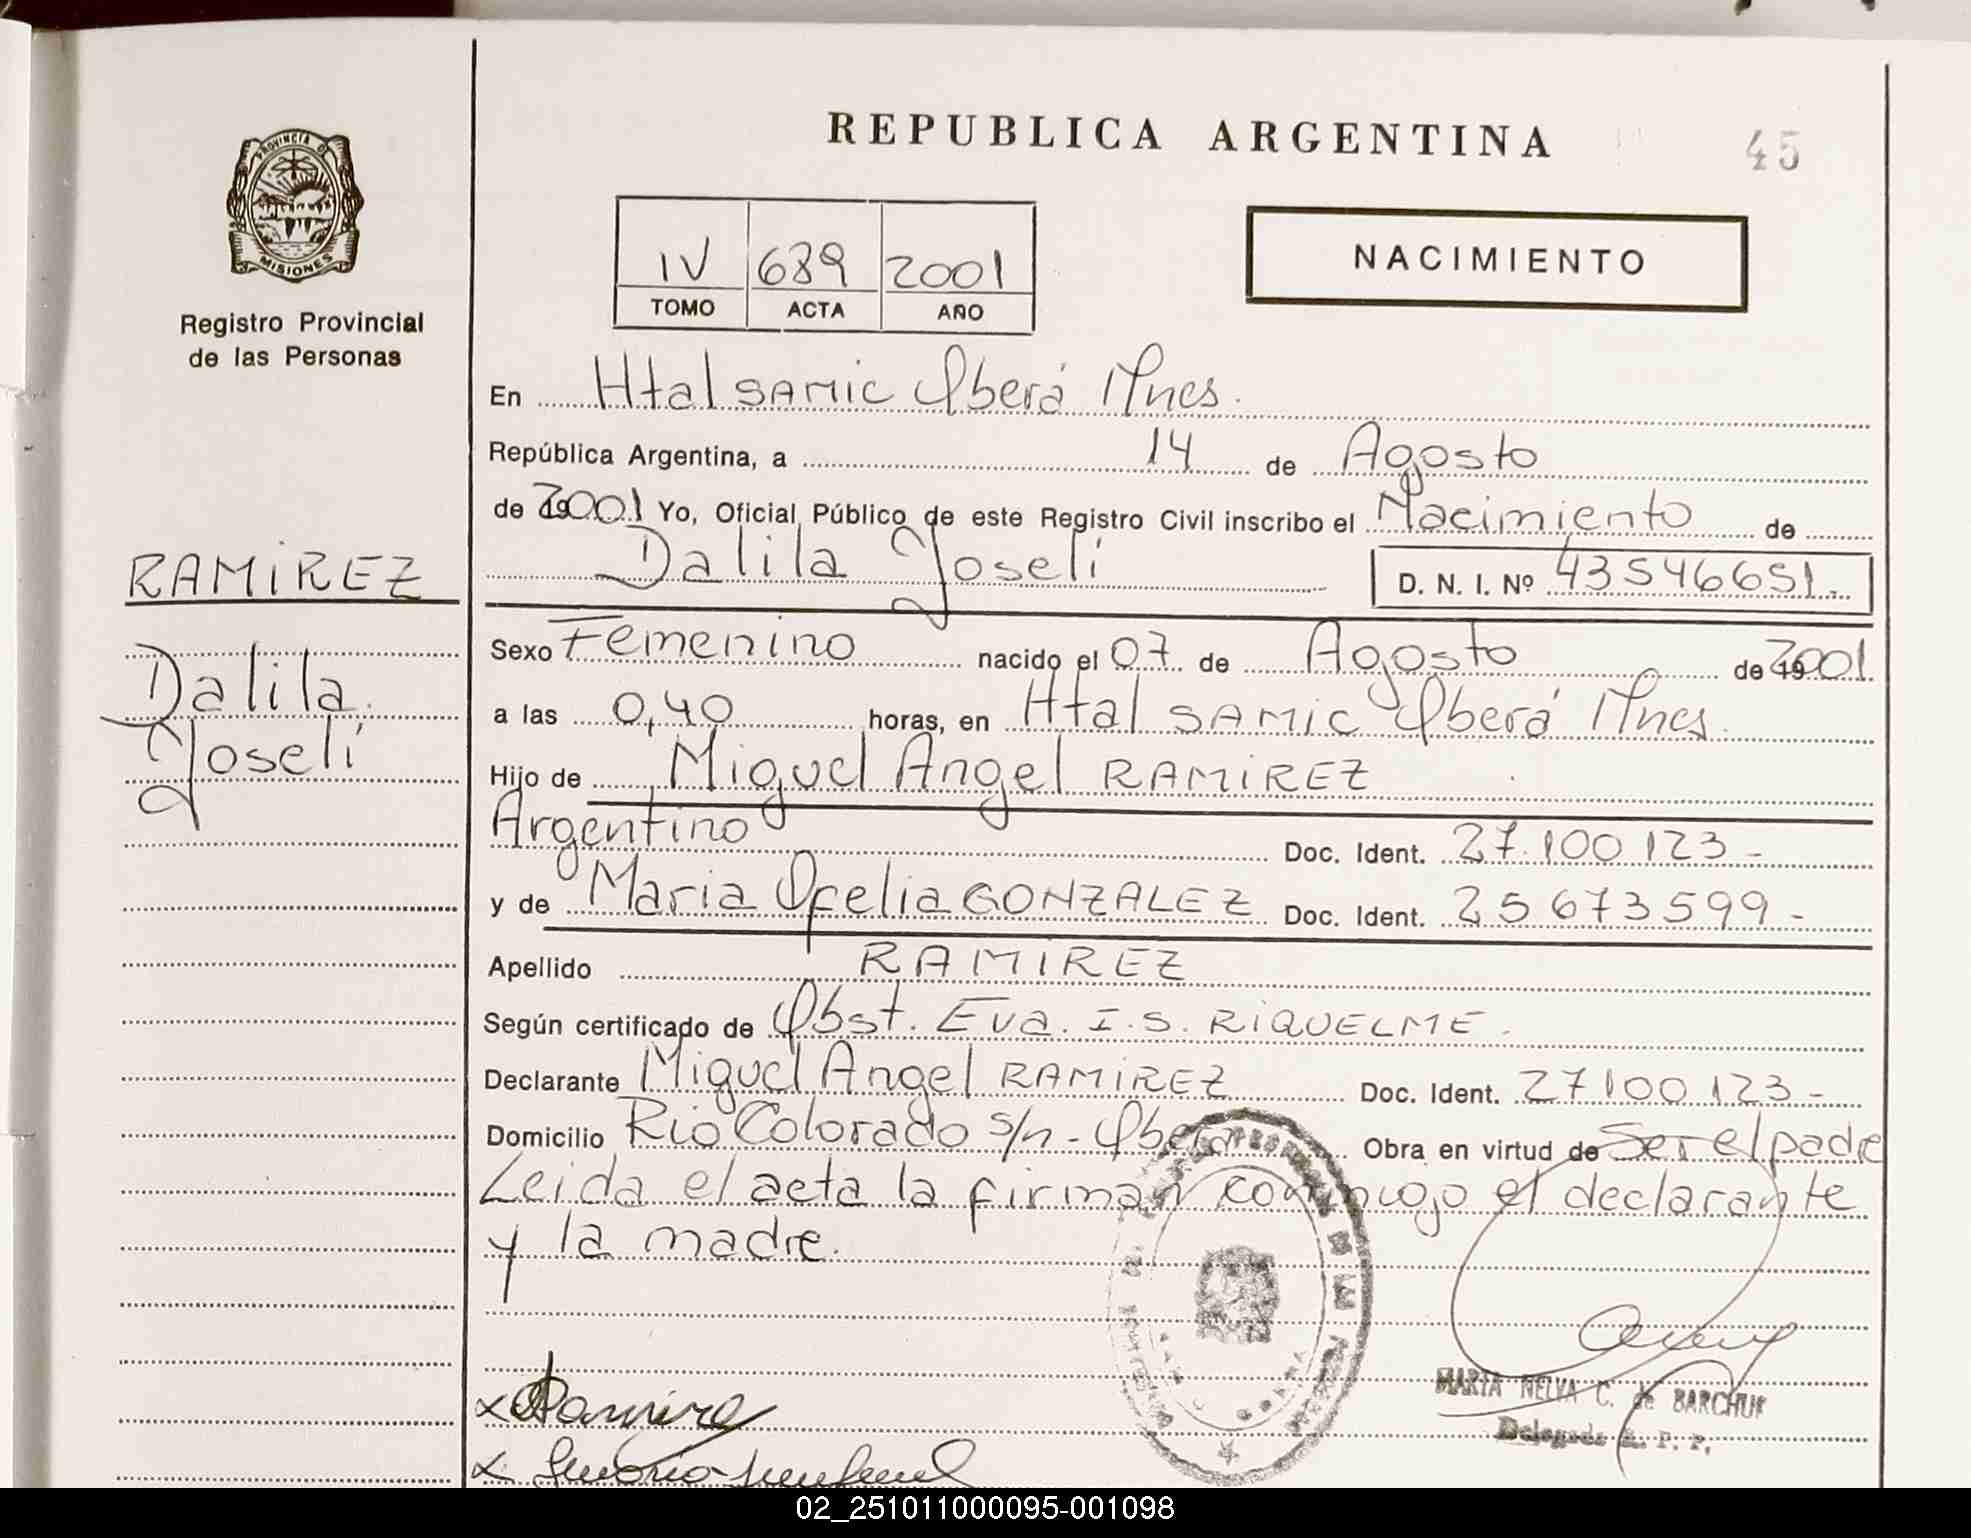 REPUBLICA ARGENTINA
45
PROVINCIA DE
MISIONES
Registro Provincial
de las Personas
IV 689 2001
TOMO ACTA AÑO
NACIMIENTO
En Htal SAMIC Oberá Mnes.
República Argentina, a 14 de Agosto
de 2001 Yo, Oficial Público de este Registro Civil inscribo el Nacimiento de
Dalila Yoseli D. N. I. Nº 43546651.-
RAMIREZ
Dalila
Yoseli
Sexo Femenino nacido el 07 de Agosto de 2001.
a las 0,40 horas, en Htal SAMIC Oberá Mnes.
Hijo de Miguel Angel RAMIREZ
Argentino Doc. Ident. 27.100123-
y de Maria Ofelia GONZALEZ Doc. Ident. 25673599-
Apellido RAMIREZ
Según certificado de Obst. Eva. I.S. RIQUELME.
Declarante Miguel Angel RAMIREZ Doc. Ident. 27100123-
Domicilio Rio Colorado s/n - Oberá Obra en virtud de Ser el padre
Leida el acta la firman conmigo el declarante
y la madre.
x Ramirez
x
MARTA NELVA C. de BARCHUK
Delegada R. P. P.
02_251011000095-001098